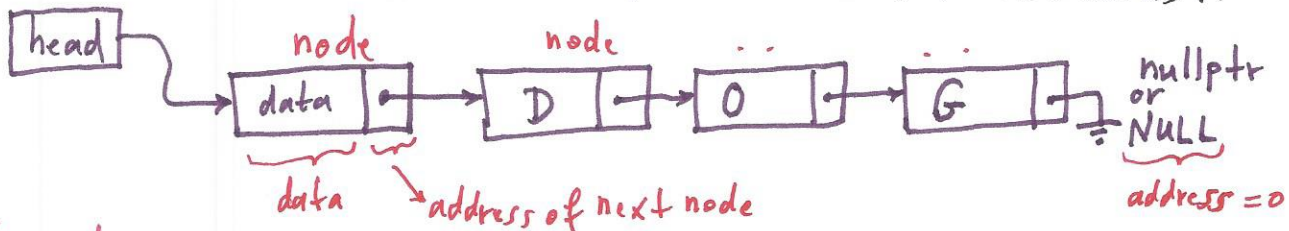 head
node node .. ..
data D O G nullptr
or
NULL
data address of next node address = 0